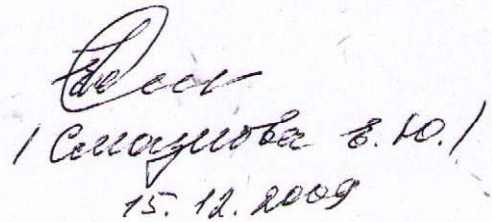 / Смазнова Е.Ю./
15.12.2009